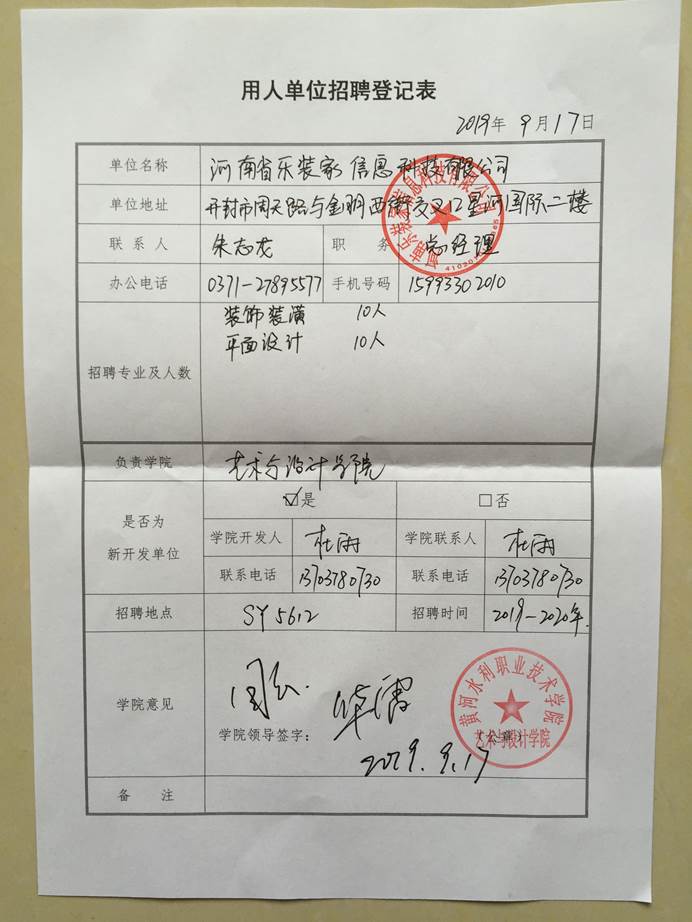 用人单位招聘登记表
2019年 9月17日
单位名称 河南省乐装家信息科技有限公司
单位地址 开封市周天路与金明西街交叉口星河国际二楼
联系人 朱志龙 职务 总经理
办公电话 0371-27895577 手机号码 15993302010
装饰装潢 10人
平面设计 10人
招聘专业及人数
负责学院 艺术与设计学院
☑是 □否
是否为
新开发单位
学院开发人 杜雨 学院联系人 杜雨
联系电话 13703780730 联系电话 13703780730
招聘地点 SY5612 招聘时间 2019-2020年.
黄河水利职业技术学院
学院意见
学院领导签字: (公章)
艺术与设计学院
2019.9.17
备注